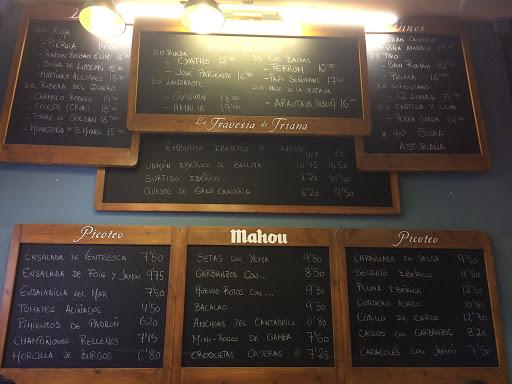 Vinos
D.O RIOJA
- PIEROLA 14'00
- RAMON BILBAO E.LIM. 16'00
- MARTINEZ ALESANCO 15'00
D.O RIBERA DEL DUERO
- CARMELO RODERO 14'00
- CELESTE (CRIA.) 18'00
- TORRE DE GOLBAN 16'00
- MONASTERIO DE S. MIGUEL 15'00
D.O RUEDA
- CYATHO 12'00
- JOSE PARIENTE 16'00
D.O LANZAROTE
- GUIGUAN 18'00
- AMALIA 17'00
D.O RIAS BAIXAS
- FERRUM 10'00
- PAZO SEÑORANS 17'00
D.O VALLE DE LA OROTAVA
La Travesía de Triana
GRAN CANARIA
- VIÑA AMABLE 19'00
D.O TORO
- SAN ROMAN 32'00
- PRIMA 16'00
D.O SOMONTANO
- 12 LUNAS 15'00
D.O CASTILLA Y LEON
- PERRA GORDA 14'00
* HAY SIDRA
ASTURIANA
EMBUTIDO IBERICO Y QUESO
JAMÓN IBÉRICO DE BELLOTA 10'75 16'50
SURTIDO IBÉRICO 7'20 10'50
QUESTO DE GRAN CANARIA 6'20 9'50
Picoteo
ENSALADA DE VENTRESCA 7'50
ENSALADA DE FOIG Y JAMON 9'75
ENSALADILLA DEL MAR 7'50
TOMATES ALIÑADOS 4'50
PIMIENTOS DE PADRÓN 6'20
CHAMPIÑONES RELLENOS 7'45
MORCILLA DE BURGOS 6'80
Mahou
SETAS CON YEMA 9'80
GARBANZOS CON... 8'50
HUEVOS ROTOS CON... 9'30
BACALAO 9'30
ANCHOAS DEL CANTABRICO 6'80
MINI-ROLLO DE GAMBA 7'60
CROQUETAS CASERAS 7'25
Picoteo
CARRILLADA EN SALSA 9'80
SECRETO IBÉRICO 11'80
PLUMA IBÉRICA 12'30
CORDERO ASADO 10'80
CODILLO DE CERDO 12'70
CALLOS CON GARBANZOS 8'20
CARACOLES CON JAMON 7'50